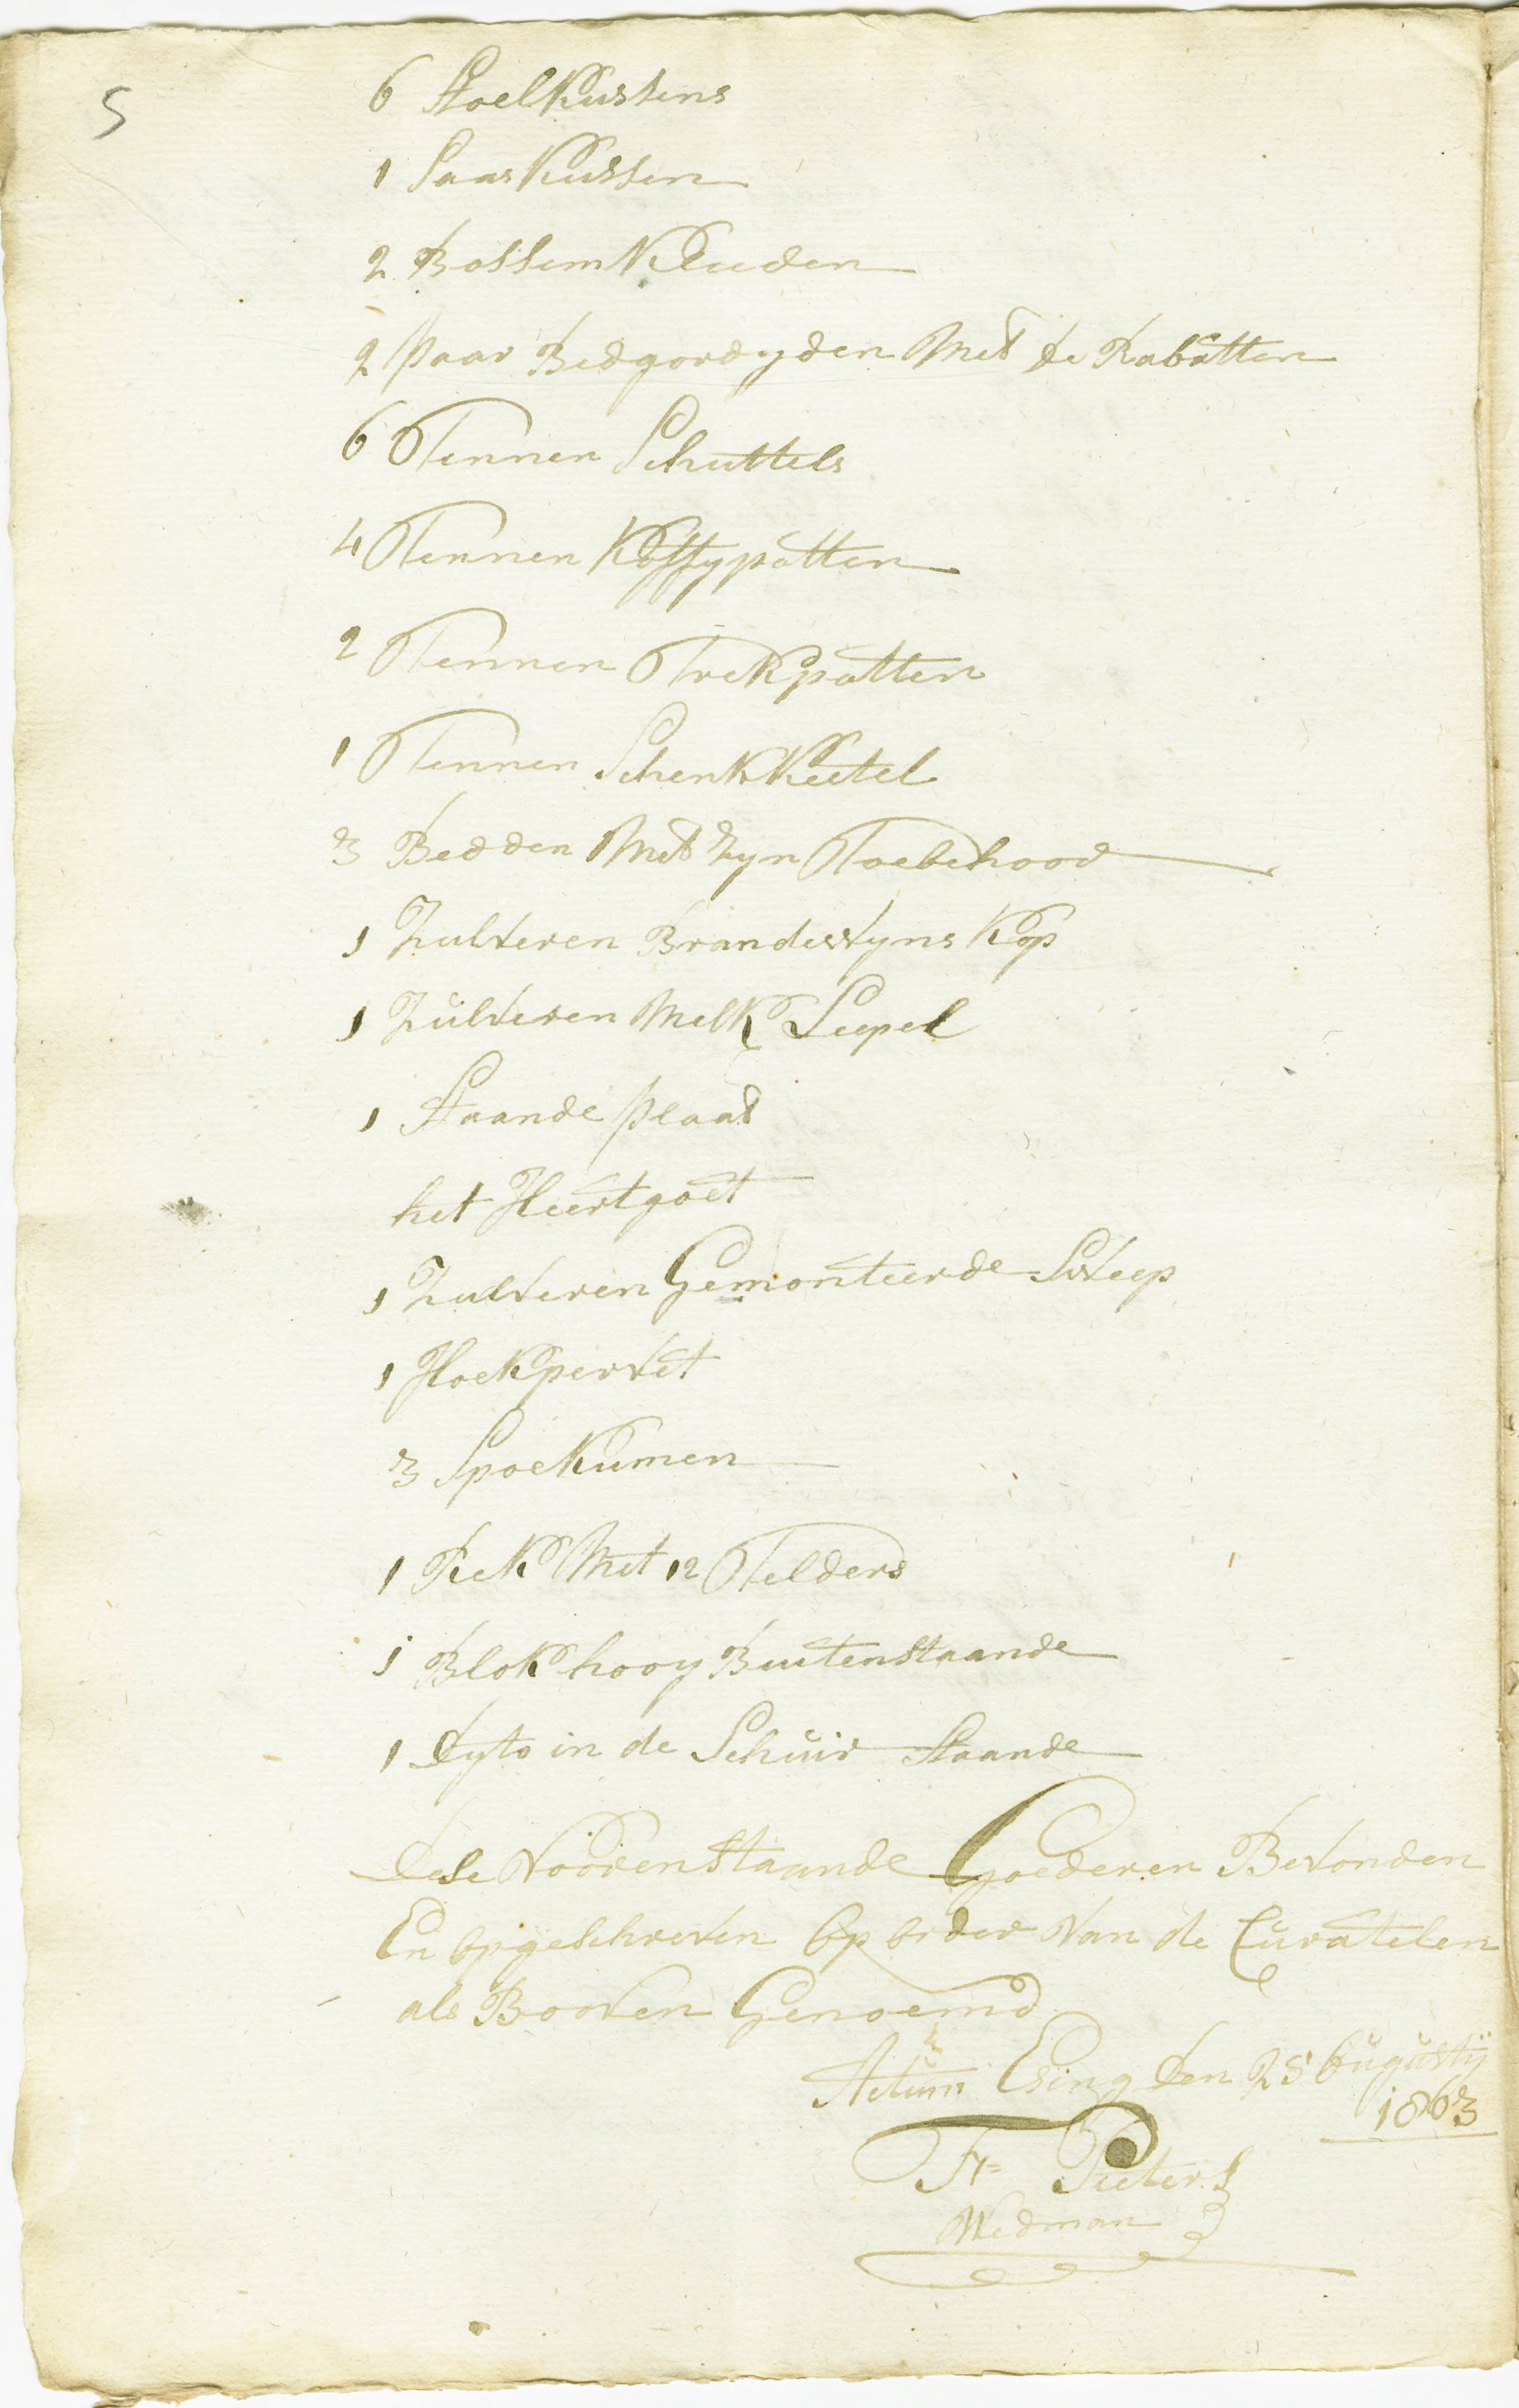 5
6 Stoelkussens
1 Laaskussen
2 Bossemkleeden
2 paar Bedgordyden Met de Rabatten
6 Tennen Schuttels
4 Tennen Koffypotten
2 Tennen Trekpotten
1 Tennen Schenkkeetel
3 Bedden Met Zyn Toebehoor
1 Zulveren Brandewyns Kop
1 Zulveren Melk Leepel
1 Staande plaat
het Heertgoet
1 Zulveren Gemonteerde Sweep
1 Hoekpervet
3 Spoelkumen
1 Rek Met 12 Telders
1 Blok hooy Buitenstaande
1 Dyto in de Schuir Staande
Dese Voorenstaande Goederen Bevonden
En opgeschreven op order van de Curatelen
als Booven Genoemd
Actum Esing den 25 Augusty
1803
Fr= Pieters
Wedman